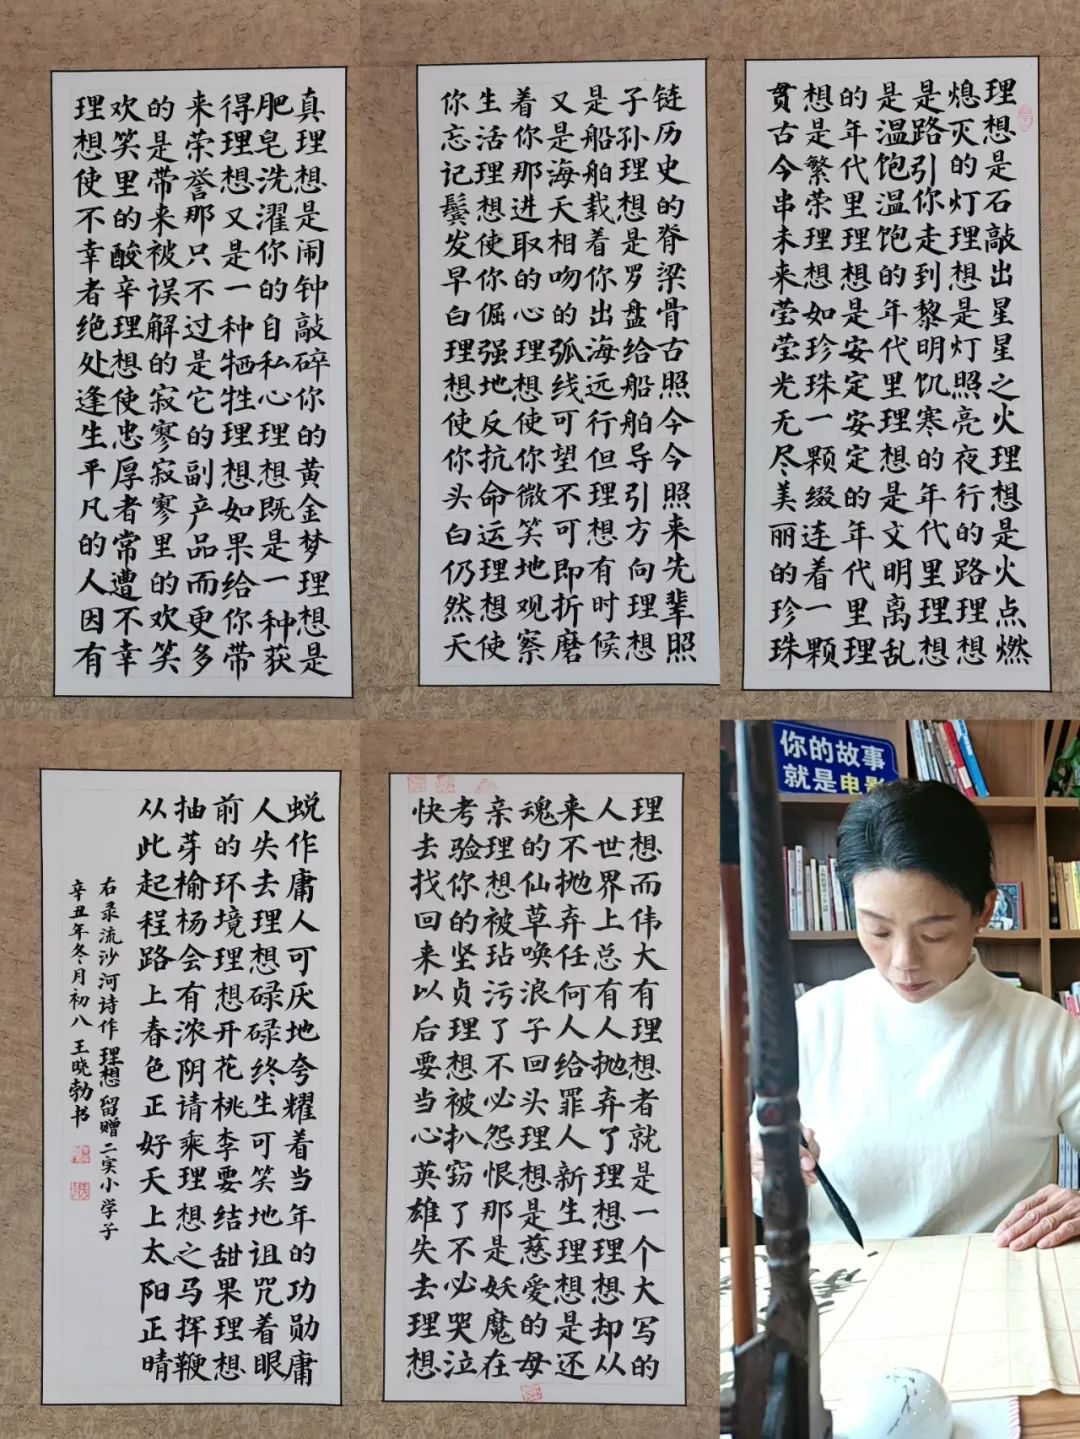 理想是石敲出星星之火理想是火点燃
熄灭的灯理想是灯照亮夜行的路理想
是路引你走到黎明饥寒的年代里理想
是温饱温饱的年代里理想是文明离乱
的年代里理想是安定安定的年代里理
想是繁荣理想如珍珠一颗缀连着一颗
贯古今串未来莹莹光无尽美丽的珍珠
链历史的脊梁骨古照今今照来先辈照
子孙理想是罗盘给船舶导引方向理想
是船舶载着你出海远行但理想有时候
又是海天相吻的弧线可望不可即折磨
着你那进取的心理想使你微笑地观察
生活理想使你倔强地反抗命运理想使
你忘记鬓发早白理想使你头白仍然天
真理想是闹钟敲碎你的黄金梦理想是
肥皂洗濯你的自私心理想既是一种获
得理想又是一种牺牲理想如果给你带
来荣誉那只不过是它的副产品而更多
的是带来被误解的寂寥寂寥里的欢笑
欢笑里的酸辛理想使忠厚者常遭不幸
理想使不幸者绝处逢生平凡的人因有
理想而伟大有理想者就是一个大写的
人世界上总有人抛弃了理想理想却从
来不抛弃任何人给罪人新生理想是还
魂的仙草唤浪子回头理想是慈爱的母
亲理想被玷污了不必怨恨那是妖魔在
考验你的坚贞理想被扒窃了不必哭泣
快去找回来以后要当心英雄失去理想
蜕作庸人可厌地夸耀着当年的功勋庸
人失去理想碌碌终生可笑地诅咒着眼
前的环境理想开花桃李要结甜果理想
抽芽榆杨会有浓阴请乘理想之马挥鞭
从此起程路上春色正好天上太阳正晴
右录流沙河诗作理想留赠二实小学子
辛丑年冬月初八王晓勃书
你的故事
就是电影